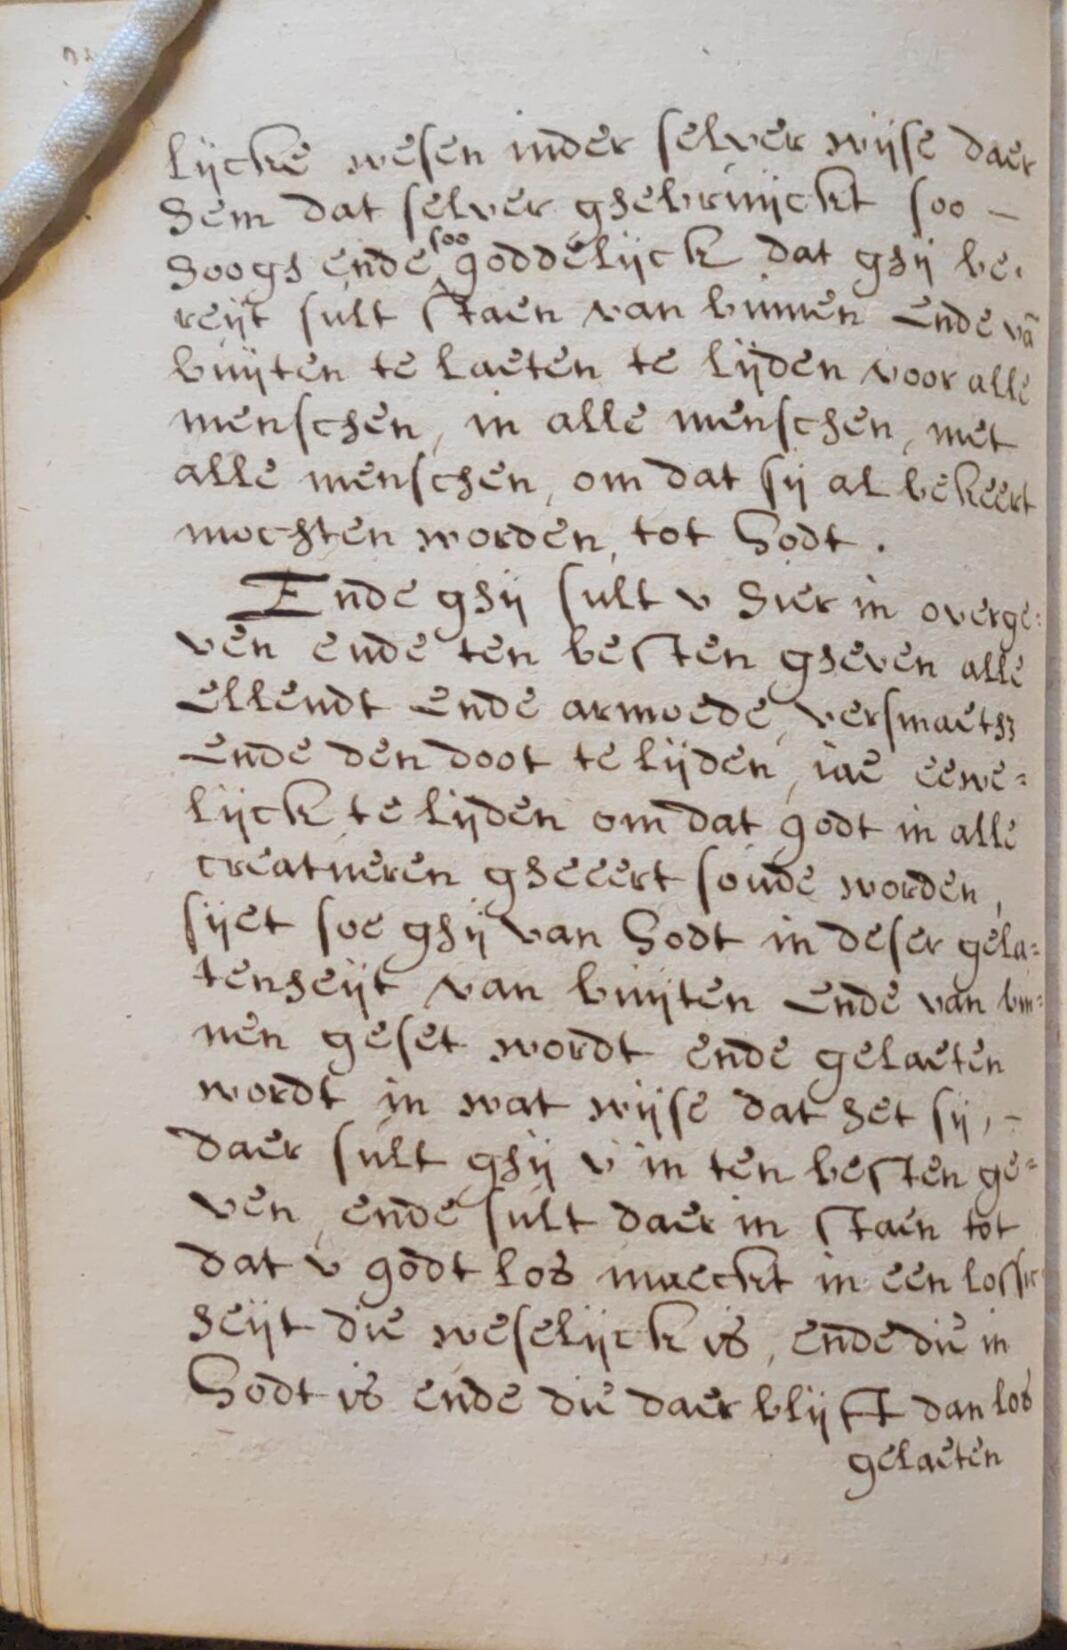 lijcke wesen inder selver wijse daer
hem dat selver ghebruijckt soo –
hoogh ende soo goddelijck dat ghij be-
reijt sult staen van binnen ende vā
buijten te laeten te lijden voor alle
menschen, in alle menschen, met
alle menschen, om dat sij al bekeert
mochten worden, tot Godt.
Ende ghij sult v hier in overge=
ven ende ten besten gheven alle
ellendt ende armoede, versmaeth3
Ende den doot te lijden, iae eewe=
lijck te lijden om dat godt in alle
creatueren gheeert soude worden,
sijet hoe ghij van Godt in deser gela=
tenheijt van buijten ende van bin=
nen geset wordt ende gelaeten
wordt in wat wijse dat het sij, –
daer sult ghij v in ten besten ge=
ven, ende sult daer in staen tot
dat v godt los maeckt in een
heijt die weselijck is, ende die in
Godt is ende die daer blijft dan los
gelaeten